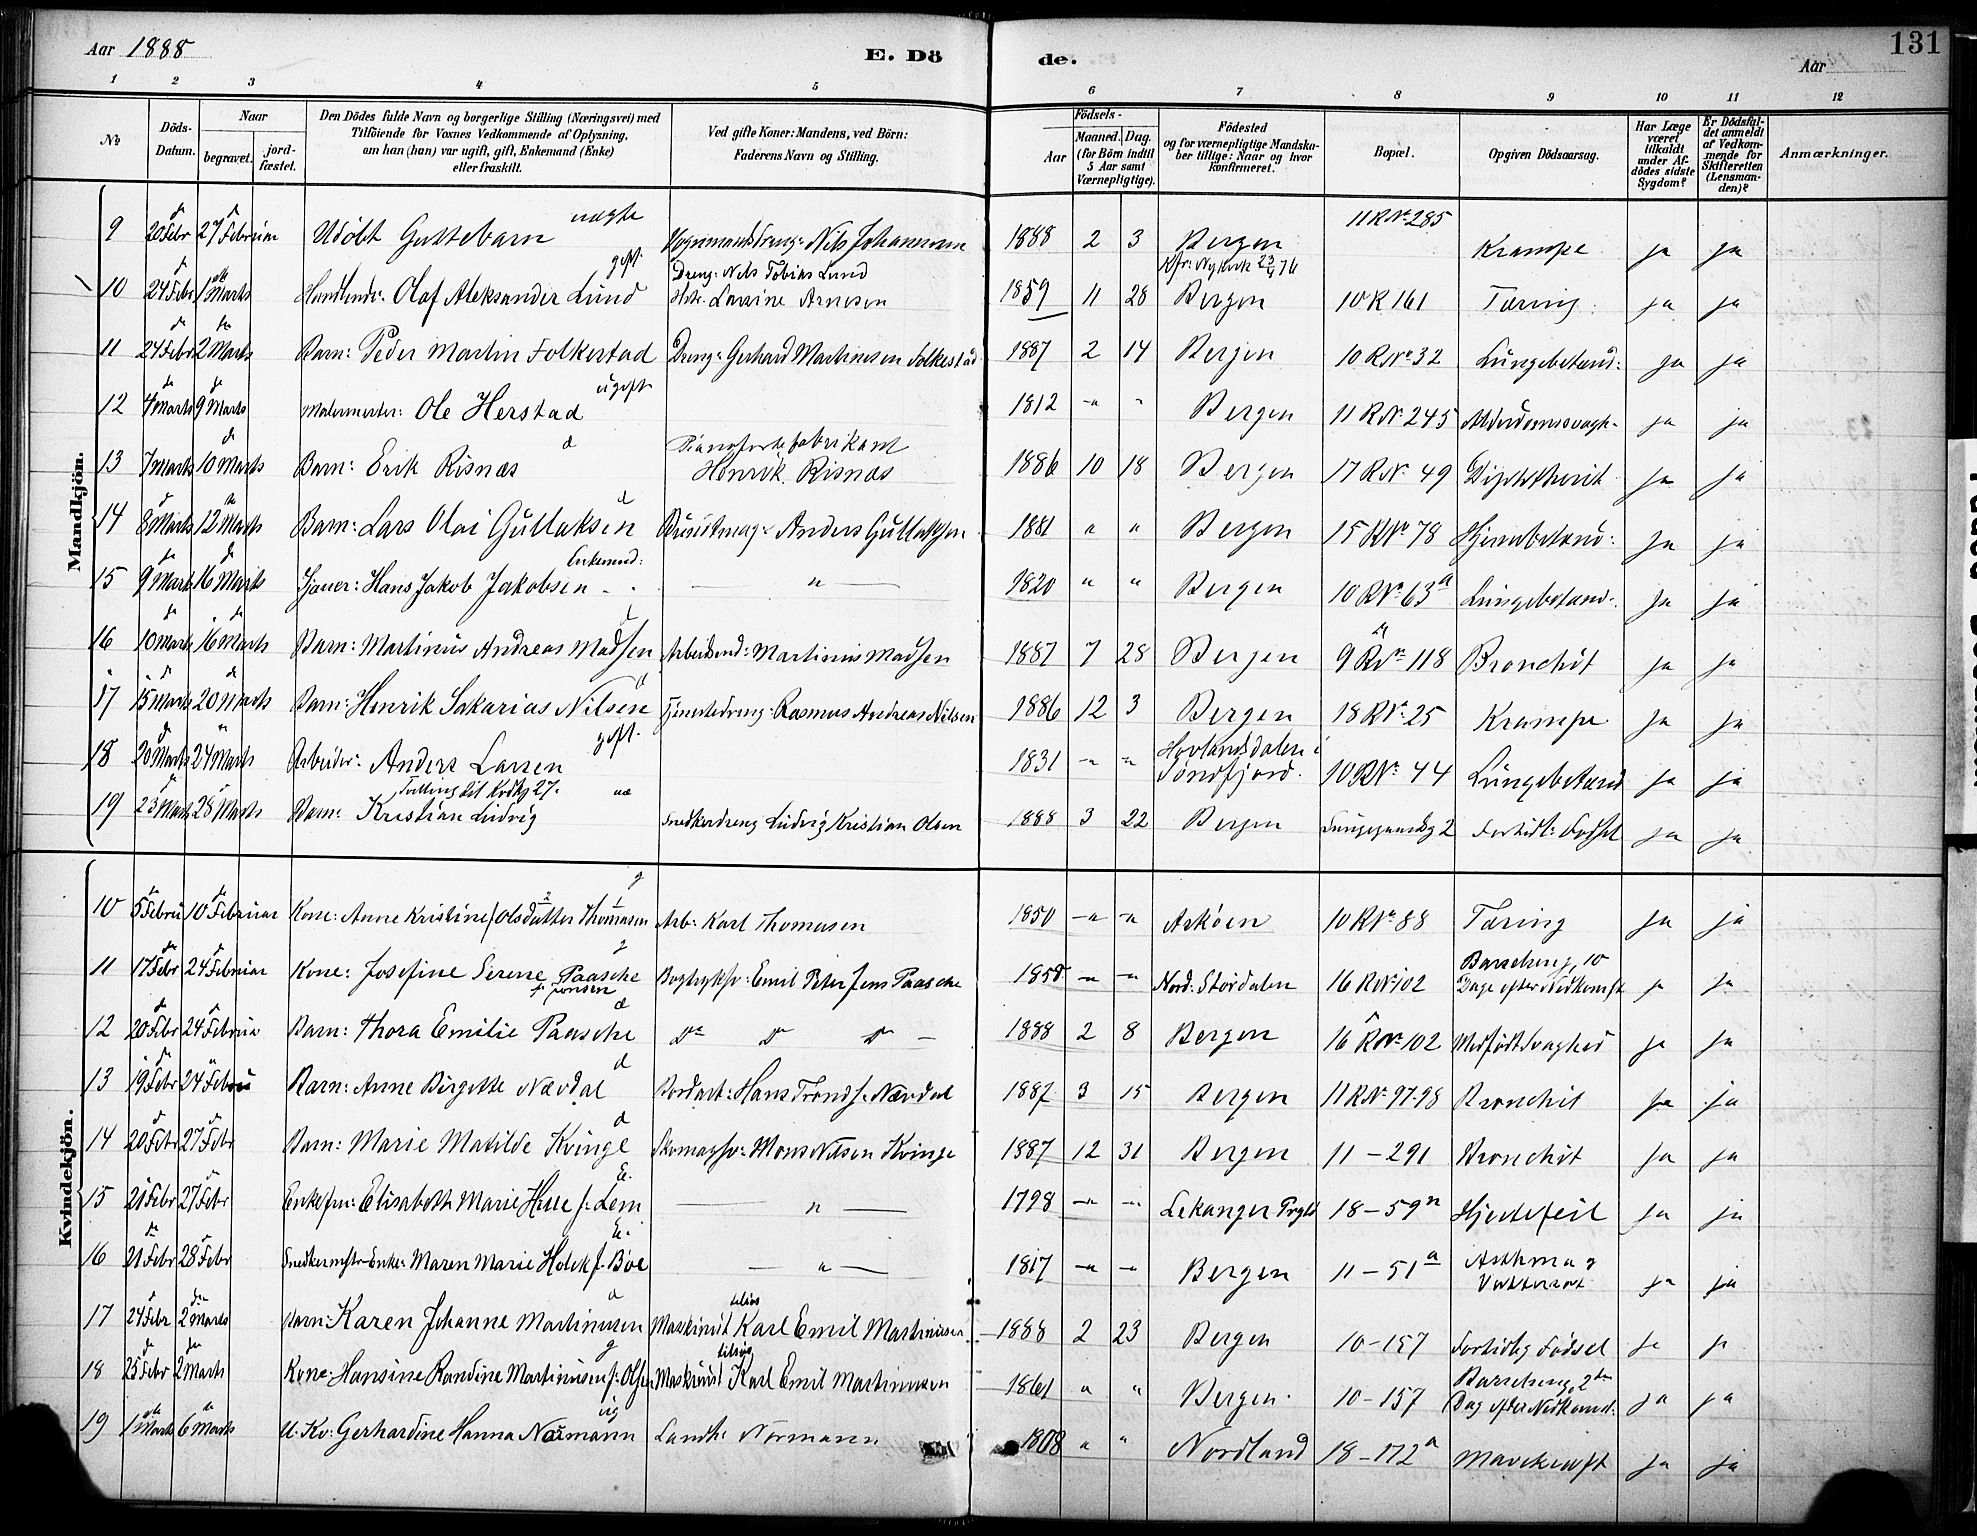 Aar 1888
E. Dö
de.
Aar
131
1 2 3 4 5 6 7 8 9 10 11 12
No
Döds-Datum.
Naar
begravet.
jord-fæstet.
Den Dödes fulde Navn og borgerlige Stilling (Næringsvei) med
Tilföiende for Voxnes Vedkommende af Oplysning,
om han (hun) var ugift, gift, Enkemand (Enke)
eller fraskilt.
Ved gifte Koner: Mandens, ved Börn:
Faderens Navn og Stilling.
Födsels-
Aar
Maaned. Dag.
(for Börn indtil
5 Aar samt
Værnepligtige).
Födested
og for værnepligtige Mandska-
ber tillige: Naar og hvor
konfirmeret.
Bopæl.
Opgiven Dödsaarsag.
Har Læge
været
tilkaldt
under Af-
dödes sidste
Sygdom?
Er Dödsfal-
det anmeldt
af Vedkom-
mende for
Skifteretten
(Lensman-
den)?
Anmærkninger.
Mandkjön.
9 20 Febr 27 Februar Udöbt Guttebarn uægte Vognmandsdreng: Nils Johannesen 1888 2 3 Bergen 11 R No 285 Krampe ja ja
10 24 Febr 1 Marts Handlende: Olaf Aleksander Lund gift Dreng: Nils Tobias Lund
Lavine Arnesen 1859 11 28 Bergen 10 R 161 Tæring ja ja
11 24 Febr 2 Marts Barn: Peder Martin Folkestad Dreng: Gerhard Martinsen Folkestad 1887 2 14 Bergen 10 R No 32 Lungebetænd: ja ja
12 4 Marts 9 Marts Malermester: Ole Herstad ugift 1812 " " Bergen 11 R No 245 Alderdomssvagh. ja ja
13 7 Marts 10 Marts Barn: Erik Risnæs Pianofortefabrikant
Henrik Risnæs 1886 10 18 Bergen 17 R No 49 ja ja
14 8 Marts 12 Marts Barn: Lars Olai Gullaksen Anders Gullaksen 1881 " " Bergen 15 R No 78 Hjernebetænd: ja ja
15 9 Marts 16 Marts Hans Jakob Jakobsen Enkemnd: " 1820 " " Bergen 10 R No 63a Lungebetænd: ja ja
16 10 Marts 16 Marts Barn: Martinus Andreas Madsen Arbeidsmd: Martinus Madsen 1887 7 28 Bergen 9 R No 118 Bronchit ja ja
17 15 Marts 20 Marts Barn: Henrik Sakarias Nilsen Tjenestedreng: Rasmus Andreas Nilsen 1886 12 3 Bergen 18 R No 25 Krampe ja ja
18 20 Marts 24 Marts Arbeider: Anders Larsen gift 1831 " " Hovlandsdalen i
Söndfjord. 10 R No 44 Lungebetænd ja ja
19 23 Marts 28 Marts Barn: Kristian Ludvig Tvilling 27 uæ Snedkerdreng Ludvig Kristian Olsen 1888 3 22 Bergen 2 Fortidl: Födsel ja ja
Kvindekjön.
10 5 Febru 10 Februar Kone: Anne Kristine Olsdatter Thomasen g Arb: Karl Thomasen 1850 " " Asköen 10 R No 88 Tæring ja ja
11 17 Febr 24 Februar Kone: Josefine Serene Paasche
f. Jonsen g Emil Peter Jens Paasche 1858 " " Nord: Stördalen 16 R No 102 Barselseng, 10
Dage efter Nedkomst ja ja
12 20 Febr 24 Februar Barn: Thora Emilie Paasche Do Do Do 1888 2 8 Bergen 16 R No 102 Medfödt Svaghed ja ja
13 19 Febr 24 Febru Barn: Anne Birgitte Nævdal Hans Trondsen Nævdal 1887 3 15 Bergen 11 R No 97-98 Bronchit ja ja
14 20 Febr 27 Febr Barn: Marie Matilde Kvinge Skomagsv: Mons Nilsen Kvinge 1887 12 31 Bergen 11 – 291 Bronchit ja ja
15 21 Febr 27 Febr Enkefru: Elisabeth Marie Helle f. Lem E. " 1798 " " Lekanger Prgld 18 – 59 Hjertefeil ja ja
16 21 Febr 28 Febr Snedkermstr-Enke: Maren Marie Holck f. Böe E. " 1817 " " Bergen 11 – 51a Asthma og
Vattersot ja ja
17 24 Febr 2 Marts Barn: Karen Johanne Martinusen Maskinist tilsjös Karl Emil Martinusen 1888 2 23 Bergen 10 – 157 Fortidlig Födsel ja ja
18 25 Febr 2 Marts Kone: Hansine Randine Martinusen f. Olsen g Maskinist tilsjös Karl Emil Martinusen 1861 " " Bergen. 10 – 157 Barselseng, 2den
Dag efter Nedkomst: ja ja
19 1 Marts 6 Marts U. Kv: Gerhardine Hanna Normann ug Landh: Normann 1808 " " Nordland 18 – 172a Mavekræft ja ja